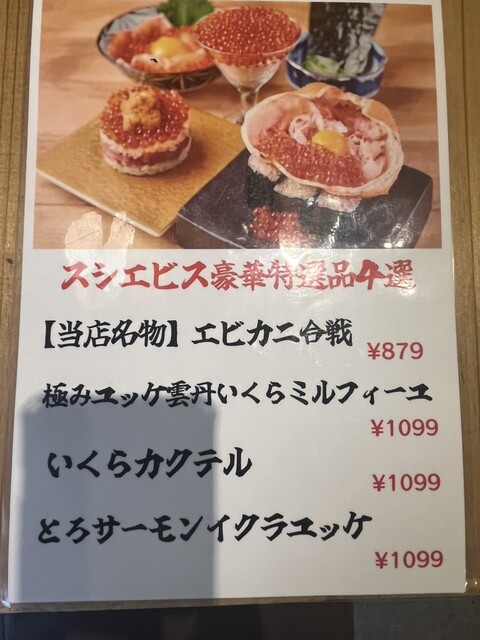 スシエビス豪華特選品4選
【当店名物】エビカニ合戦
¥879
極みユッケ雲丹いくらミルフィーユ
¥1099
いくらカクテル
¥1099
とろサーモンイクラユッケ
¥1099